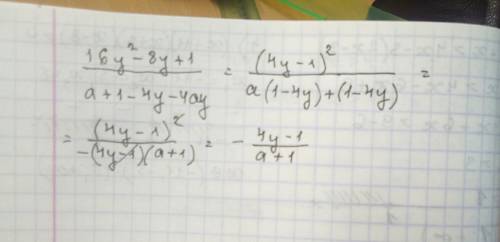 (16y² - 8y + 1)/(a + 1 - 4y - 4ay) = (4y - 1)²/(a(1 - 4y) + (1 - 4y)) =
= (4y - 1)²/(-(4y - 1)(a + 1)) = - (4y - 1)/(a + 1)